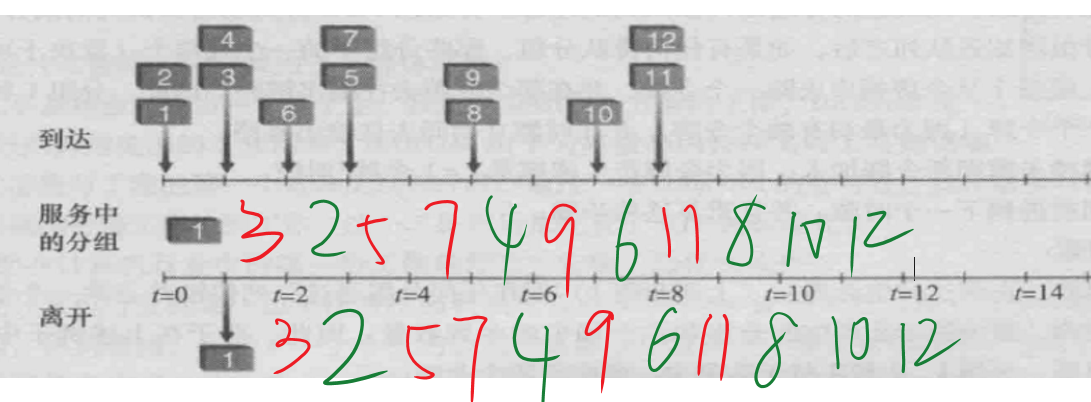 4 7 12
2 3 5 9 11
1 6 8 10
到达
服务中
的分组
1 3 2 5 7 4 9 6 11 8 10 12
t=0 t=2 t=4 t=6 t=8 t=10 t=12 t=14
离开
1 3 2 5 7 4 9 6 11 8 10 12